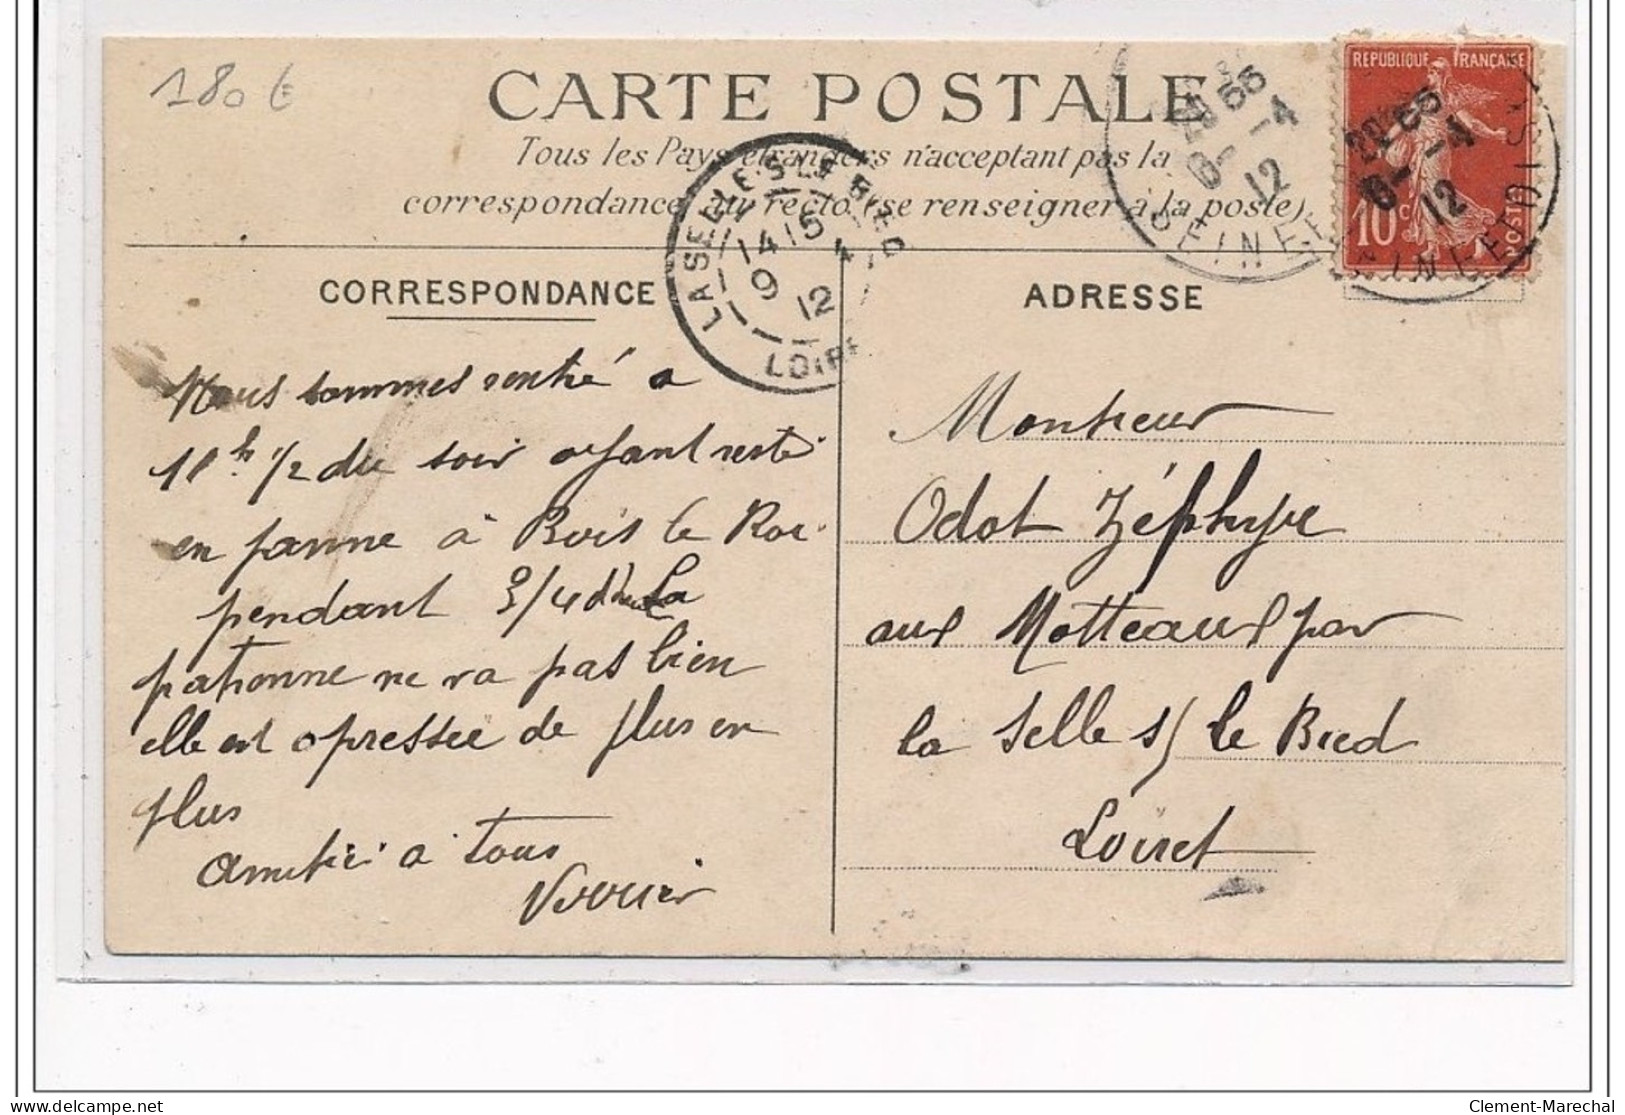 180 €
CARTE POSTALE
Tous les Pays étrangers n'acceptant pas la
correspondance au recto (se renseigner à la poste)
REPUBLIQUE FRANÇAISE
10 c
POSTES
20 55
8 - 4
12
SEINE ET OISE
LA SELLE-S-LE BIED
14 15
9 4
12
LOIRET
CORRESPONDANCE
Nous sommes rentré a
11 h 1/2 du soir ayant resté
en panne à Bois le Roi
pendant 3/4 d'h La
patronne ne va pas bien
elle est opressée de plus en
plus
amitié a tous
Verrier
ADRESSE
Monsieur
Odot Zéphyr
aux Motteaux par
la Selle s/ le Bied
Loiret
Clement-Marechal